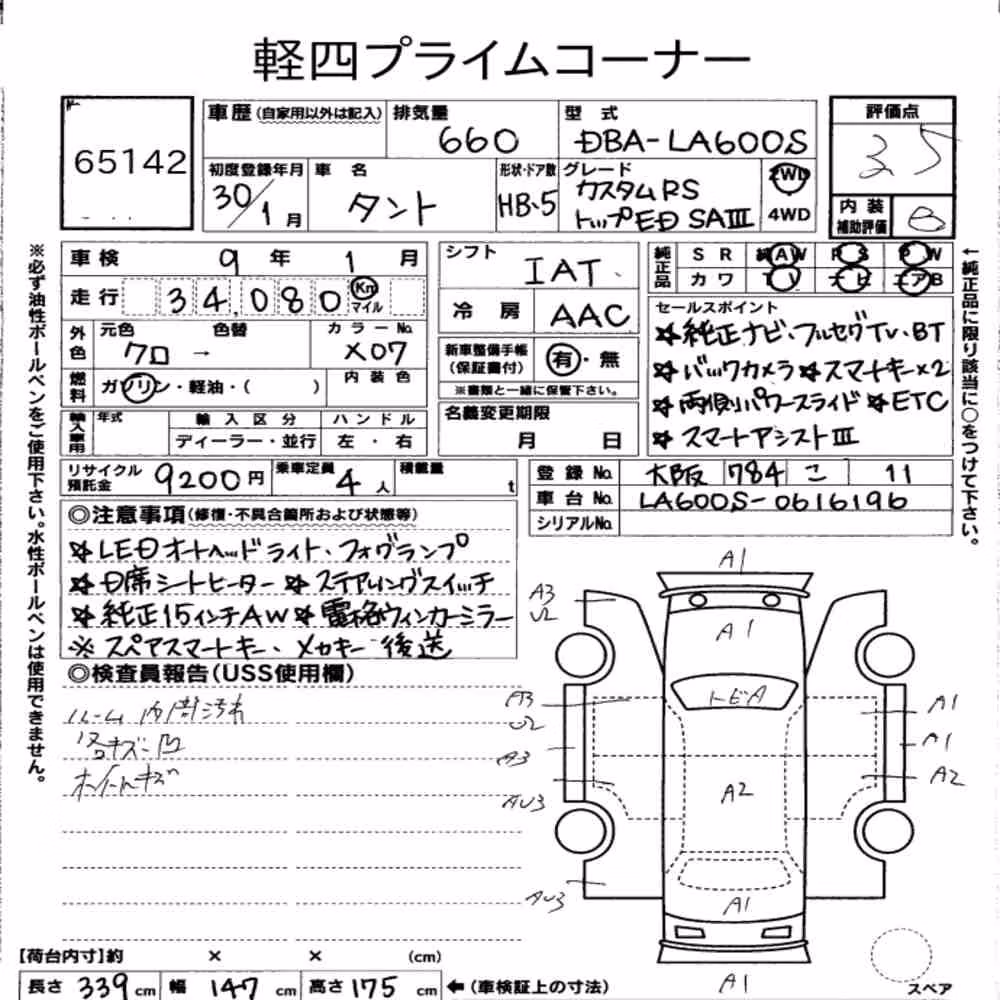 軽四プライムコーナー
65142
車歴(自家用以外は記入) 排気量 660 型式 DBA-LA600S
初度登録年月 30/1月 車名 タント 形状・ドア数 HB・5 グレード カスタムRS トップED SAⅢ 2WD 4WD
評価点 3.5
内装補助評価 B
車検 9年 1月
走行 34,080 Km マイル
外色 元色 クロ 色替 → カラーNo. X07
燃料 ガソリン・軽油・( ) 内装色
輸入車用 年式 輸入区分 ディーラー・並行 ハンドル 左・右
シフト IAT
冷房 AAC
新車整備手帳(保証書付) 有・無
※書類と一緒に保管下さい。
名義変更期限 月 日
純正品 SR 純AW PS PW
カワ TV ナビ エアB
セールスポイント
☆純正ナビ・フルセグTV・BT
☆バックカメラ☆スマートキー×2
☆両側パワースライド☆ETC
☆スマートアシストⅢ
リサイクル預託金 9200円 乗車定員 4人 積載量 t
登録No. 大阪 784 こ 11
車台No. LA600S-0616196
シリアルNo.
◎注意事項(修復・不具合箇所および状態等)
☆LEDオートヘッドライト・フォグランプ
☆D席シートヒーター☆ステアリングスイッチ
☆純正15インチAW☆電格ウィンカーミラー
※スペアスマートキー、メカキー後送
◎検査員報告(USS使用欄)
ルーム内周汚れ
ホイールキズ
※必ず油性ボールペンをご使用下さい。水性ボールペンは使用できません。
←純正品に限り該当に○をつけて下さい。
A1
A3
U2
A1
トビA
A3
U2
A1
A3
A1
A2
A2
AU3
AU3
A1
A1
スペア
【荷台内寸】約 × × (cm)
長さ 339cm 幅 147cm 高さ 175cm ←(車検証上の寸法)